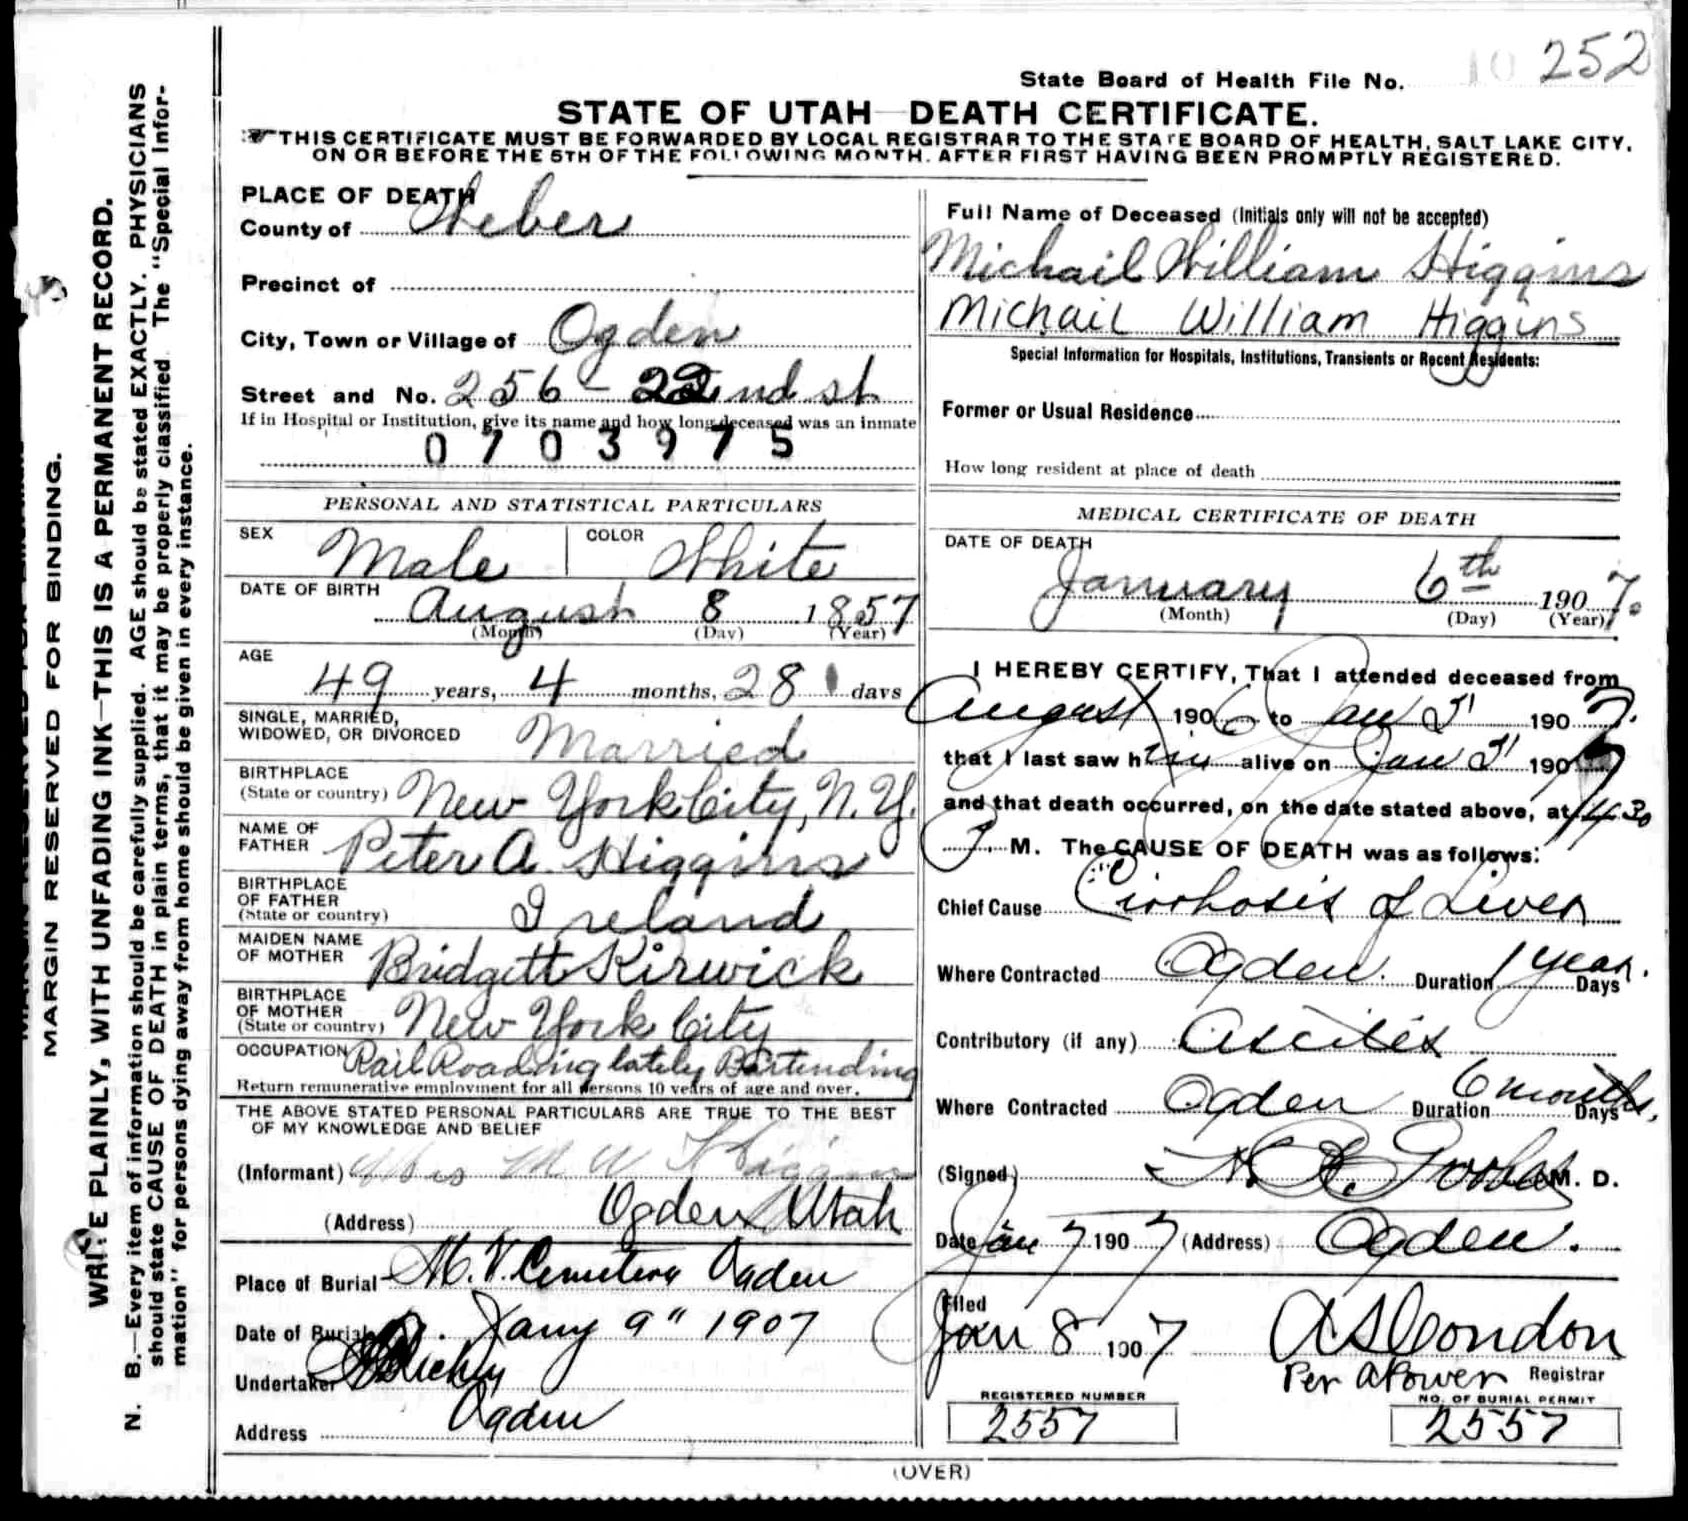 State Board of Health File No. 252
STATE OF UTAH—DEATH CERTIFICATE.
THIS CERTIFICATE MUST BE FORWARDED BY LOCAL REGISTRAR TO THE STATE BOARD OF HEALTH, SALT LAKE CITY,
ON OR BEFORE THE 5TH OF THE FOLLOWING MONTH, AFTER FIRST HAVING BEEN PROMPTLY REGISTERED.
MARGIN RESERVED FOR BINDING.
WRITE PLAINLY, WITH UNFADING INK—THIS IS A PERMANENT RECORD.
N. B.—Every item of information should be carefully supplied. AGE should be stated EXACTLY. PHYSICIANS
should state CAUSE OF DEATH in plain terms, that it may be properly classified. The "Special Infor-
mation" for persons dying away from home should be given in every instance.
PLACE OF DEATH
County of Weber
Precinct of
City, Town or Village of Ogden
Street and No. 256 - 22nd st
If in Hospital or Institution, give its name and how long deceased was an inmate
0703975
PERSONAL AND STATISTICAL PARTICULARS
SEX Male COLOR White
DATE OF BIRTH August 8 1857
(Month) (Day) (Year)
AGE 49 years, 4 months, 28 days
SINGLE, MARRIED,
WIDOWED, OR DIVORCED Married
BIRTHPLACE
(State or country) New York City, N.Y.
NAME OF
FATHER Peter A. Higgins
BIRTHPLACE
OF FATHER
(State or country) Ireland
MAIDEN NAME
OF MOTHER Bridgett Kirwick
BIRTHPLACE
OF MOTHER
(State or country) New York City
OCCUPATION Rail Roading lately Bartending
Return remunerative employment for all persons 10 years of age and over.
THE ABOVE STATED PERSONAL PARTICULARS ARE TRUE TO THE BEST
OF MY KNOWLEDGE AND BELIEF
(Informant) Mrs M W Higgins
(Address) Ogden Utah
Place of Burial M.V. Cemetery Ogden
Date of Burial Jany 9" 1907
Undertaker
Address Ogden
Full Name of Deceased (Initials only will not be accepted)
Michail William Higgins
Michail William Higgins
Special Information for Hospitals, Institutions, Transients or Recent Residents:
Former or Usual Residence
How long resident at place of death
MEDICAL CERTIFICATE OF DEATH
DATE OF DEATH
January 6th 1907.
(Month) (Day) (Year)
I HEREBY CERTIFY, That I attended deceased from
August 1906 to Jan 1907.
that I last saw him alive on Jan 1907
and that death occurred, on the date stated above, at
P. M. The CAUSE OF DEATH was as follows:
Chief Cause Cirrhosis of Liver
Where Contracted Ogden. Duration 1 year. Days
Contributory (if any) Ascites
Where Contracted Ogden Duration 6 months, Days
(Signed) M. D.
Date Jan 7 1907 (Address) Ogden.
Filed
Jan 8 1907 A S Condon
Per A Power Registrar
REGISTERED NUMBER
2557
NO. OF BURIAL PERMIT
2557
(OVER)